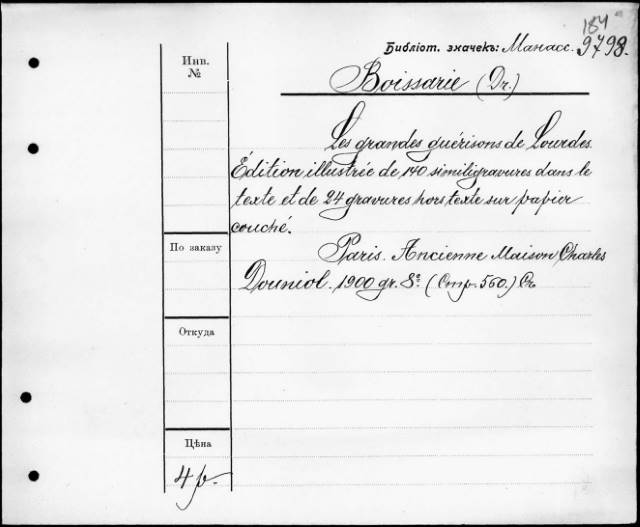 184
Библіот. значекъ: Манасс. 9798.
Инв.
№
Boissarie (Dr.)
Les grandes guérisons de Lourdes.
Édition illustrée de 140 similigravures dans le
texte et de 24 gravures hors texte sur papier
couché.
По заказу
Paris. Ancienne Maison Charles
Douniol. 1900 gr. 8º. (Стр. 560.)
Откуда
Цѣна
4 р.